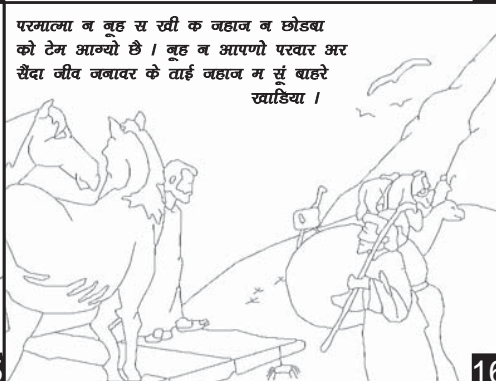 परमात्मा न नूह स खी क जहाज न छोडबा
को टेम आग्यो छै । नूह न आपणो परवार अर
सैंदा जीव जनावर के ताई जहाज म सूं बाहरे
खाडिया ।
16